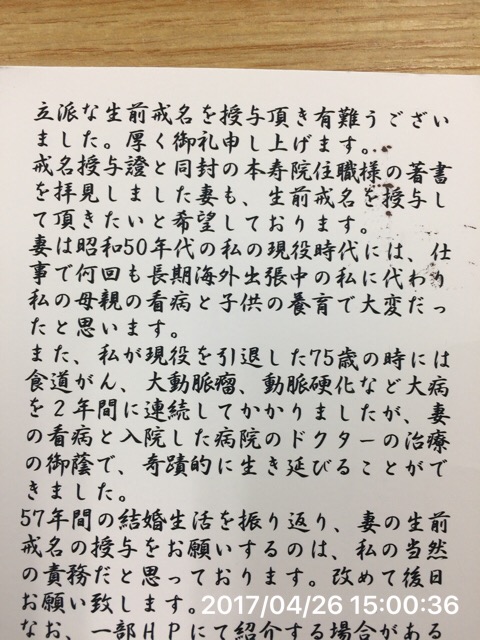 立派な生前戒名を授与頂き有難うござい
ました。厚く御礼申し上げます。
戒名授与證と同封の本寿院住職様の著書
を拝見しました妻も、生前戒名を授与し
て頂きたいと希望しております。
妻は昭和50年代の私の現役時代には、仕
事で何回も長期海外出張中の私に代わり
私の母親の看病と子供の養育で大変だっ
たと思います。
また、私が現役を引退した75歳の時には
食道がん、大動脈瘤、動脈硬化など大病
を２年間に連続してかかりましたが、妻
の看病と入院した病院のドクターの治療
の御蔭で、奇蹟的に生き延びることがで
きました。
57年間の結婚生活を振り返り、妻の生前
戒名の授与をお願いするのは、私の当然
の責務だと思っております。改めて後日
お願い致します。
2017/04/26 15:00:36
なお、一部ＨＰにて紹介する場合がある